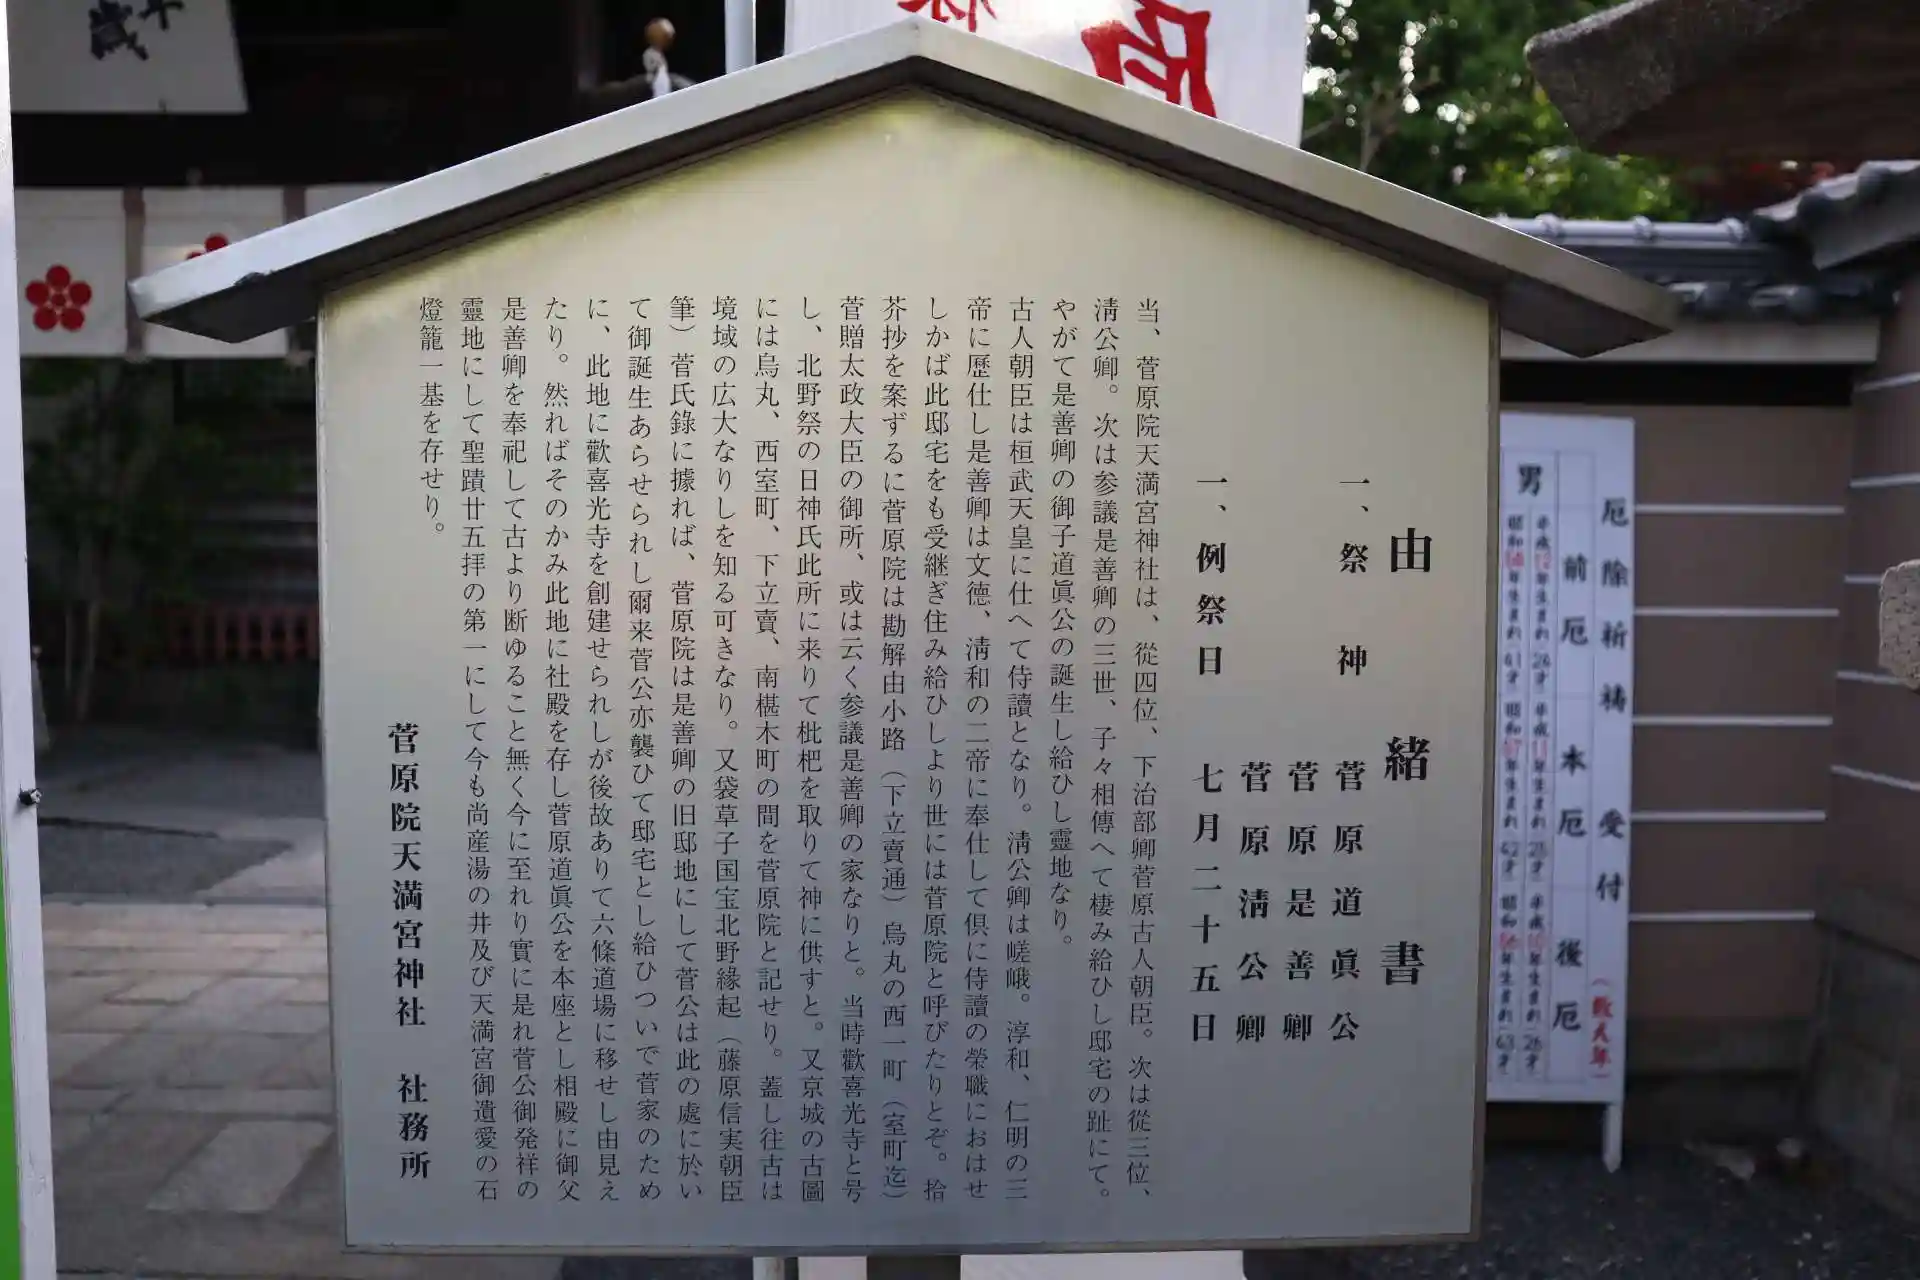 由緒書
一、祭神 菅原道眞公
菅原是善卿
菅原清公卿
一、例祭日 七月二十五日
当、菅原院天満宮神社は、從四位、下治部卿菅原古人朝臣。次は從三位、
清公卿。次は参議是善卿の三世、子々相傳へて棲み給ひし邸宅の趾にて。
やがて是善卿の御子道眞公の誕生し給ひし靈地なり。
古人朝臣は桓武天皇に仕へて侍讀となり。清公卿は嵯峨。淳和、仁明の三
帝に歷仕し是善卿は文德、清和の二帝に奉仕して俱に侍讀の榮職におはせ
しかば此邸宅をも受継ぎ住み給ひしより世には菅原院と呼びたりとぞ。拾
芥抄を案ずるに菅原院は勘解由小路（下立賣通）烏丸の西一町（室町迄）
菅贈太政大臣の御所、或は云く参議是善卿の家なりと。当時歡喜光寺と号
し、北野祭の日神氏此所に来りて枇杷を取りて神に供すと。又京城の古圖
には烏丸、西室町、下立賣、南椹木町の間を菅原院と記せり。蓋し往古は
境域の広大なりしを知る可きなり。又袋草子国宝北野緣起（藤原信実朝臣
筆）菅氏錄に據れば、菅原院は是善卿の旧邸地にして菅公は此の處に於い
て御誕生あらせられし爾来菅公亦襲ひて邸宅とし給ひついで菅家のため
に、此地に歡喜光寺を創建せられしが後故ありて六條道場に移せし由見え
たり。然ればそのかみ此地に社殿を存し菅原道眞公を本座とし相殿に御父
是善卿を奉祀して古より断ゆること無く今に至れり實に是れ菅公御発祥の
靈地にして聖蹟廿五拝の第一にして今も尚産湯の井及び天満宮御遺愛の石
燈籠一基を存せり。
菅原院天満宮神社 社務所
厄除祈祷 受付（数え年）
前厄 本厄 後厄
男
平成12年生まれ 26才 平成11年生まれ 25才 平成10年生まれ 26才
昭和58年生まれ 41才 昭和57年生まれ 42才 昭和56年生まれ 43才